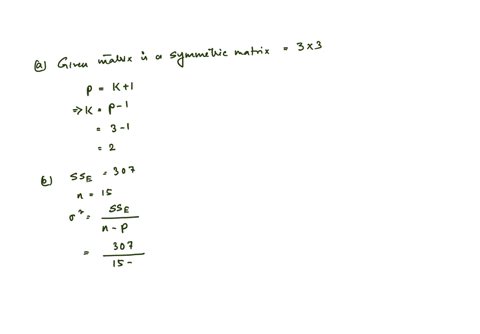 (a) Given matrix is a symmetric matrix = 3×3
P = K+1
⇒ K = P-1
= 3-1
= 2
(b) SSE = 307
n = 15
σ² = SSE / n-p
= 307 / 15-